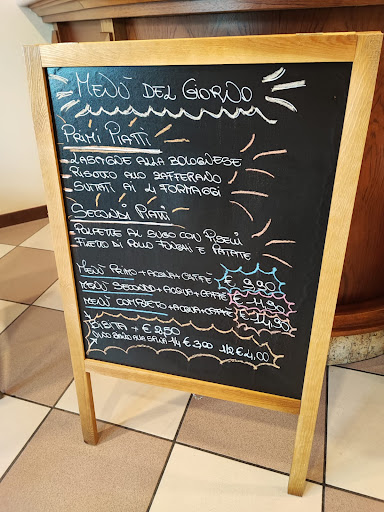 MENÙ DEL GIORNO
PRIMI PIATTI
- LASAGNE ALLA BOLOGNESE
- RISOTTO ALLO ZAFFERANO
- AI 4 FORMAGGI
SECONDI PIATTI
- POLPETTE AL SUGO CON PISELLI
- FILETTO DI POLLO FUNGHI E PATATE
MENÙ PRIMO + ACQUA + CAFFÈ € 9,90
MENÙ SECONDO + ACQUA + CAFFÈ €
MENÙ COMPLETO + ACQUA + CAFFÈ € 14,90
BIBITA + € 2,50
VINO ALLA SPINA 1/4 € 3,00 1/2 € 4,00